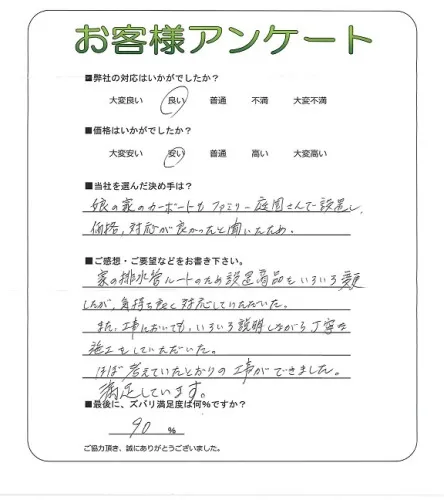 お客様アンケート
■弊社の対応はいかがでしたか?
大変良い 良い 普通 不満 大変不満
■価格はいかがでしたか?
大変安い 安い 普通 高い 大変高い
■当社を選んだ決め手は?
娘の家のカーポートもファミリー庭園さんで設置し、
価格、対応が良かったと聞いたため。
■ご感想・ご要望などをお書き下さい。
家の排水管ルートのため設置商品をいろいろ
したが、気持ち良く対応していただいた。
また、工事においても、いろいろ説明しながら丁寧な
施工をしていただいた。
ほぼ考えていたとおりの工事ができました。
満足しています。
■最後に、ズバリ満足度は何%ですか?
90 %
ご協力頂き、誠にありがとうございました。